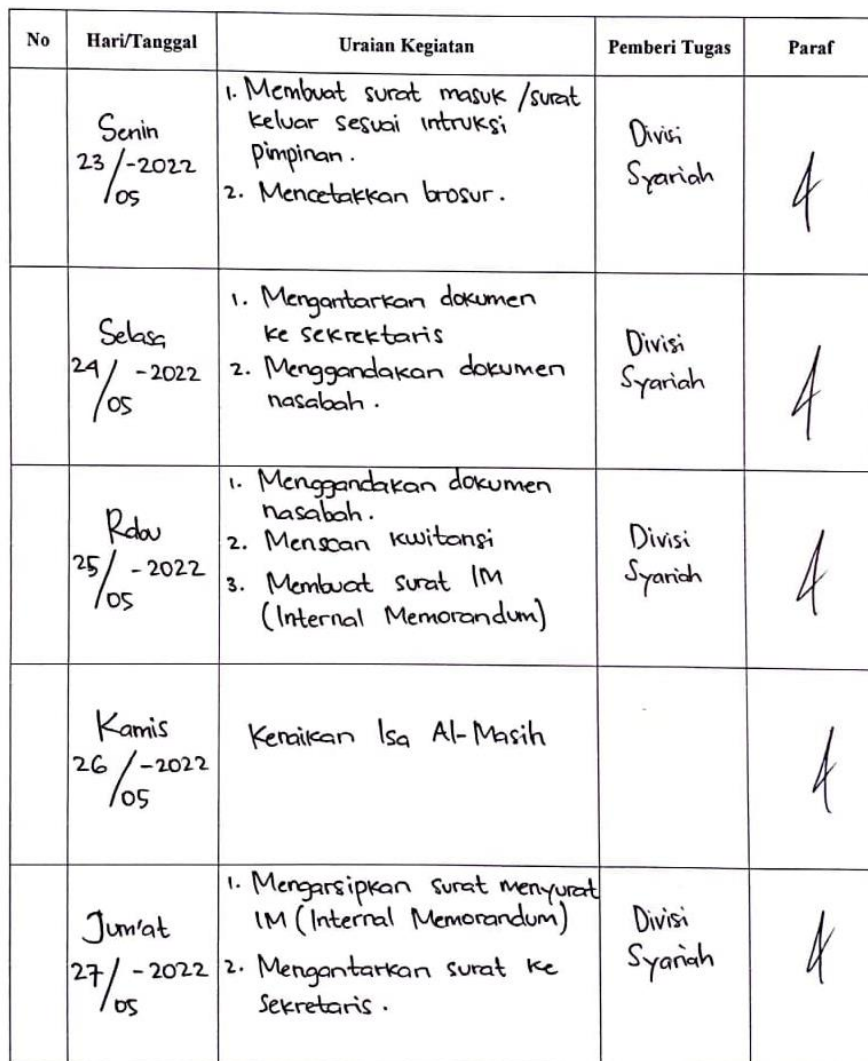 No Hari/Tanggal Uraian Kegiatan Pemberi Tugas Paraf
Senin
23/-2022
05
1. Membuat surat masuk /surat
keluar sesuai intruksi
pimpinan.
2. Mencetakkan brosur.
Divisi
Syariah
Selasa
24/ -2022
05
1. Mengantarkan dokumen
ke sekrektaris
2. Menggandakan dokumen
nasabah.
Divisi
Syariah
Rabu
25/ -2022
05
1. Menggandakan dokumen
nasabah.
2. Menscan kwitansi
3. Membuat surat IM
(Internal Memorandum)
Divisi
Syariah
Kamis
26/-2022
05
Kenaikan Isa Al-Masih
Jum'at
27/ -2022
05
1. Mengarsipkan surat menyurat
IM (Internal Memorandum)
2. Mengantarkan surat ke
Sekretaris.
Divisi
Syariah